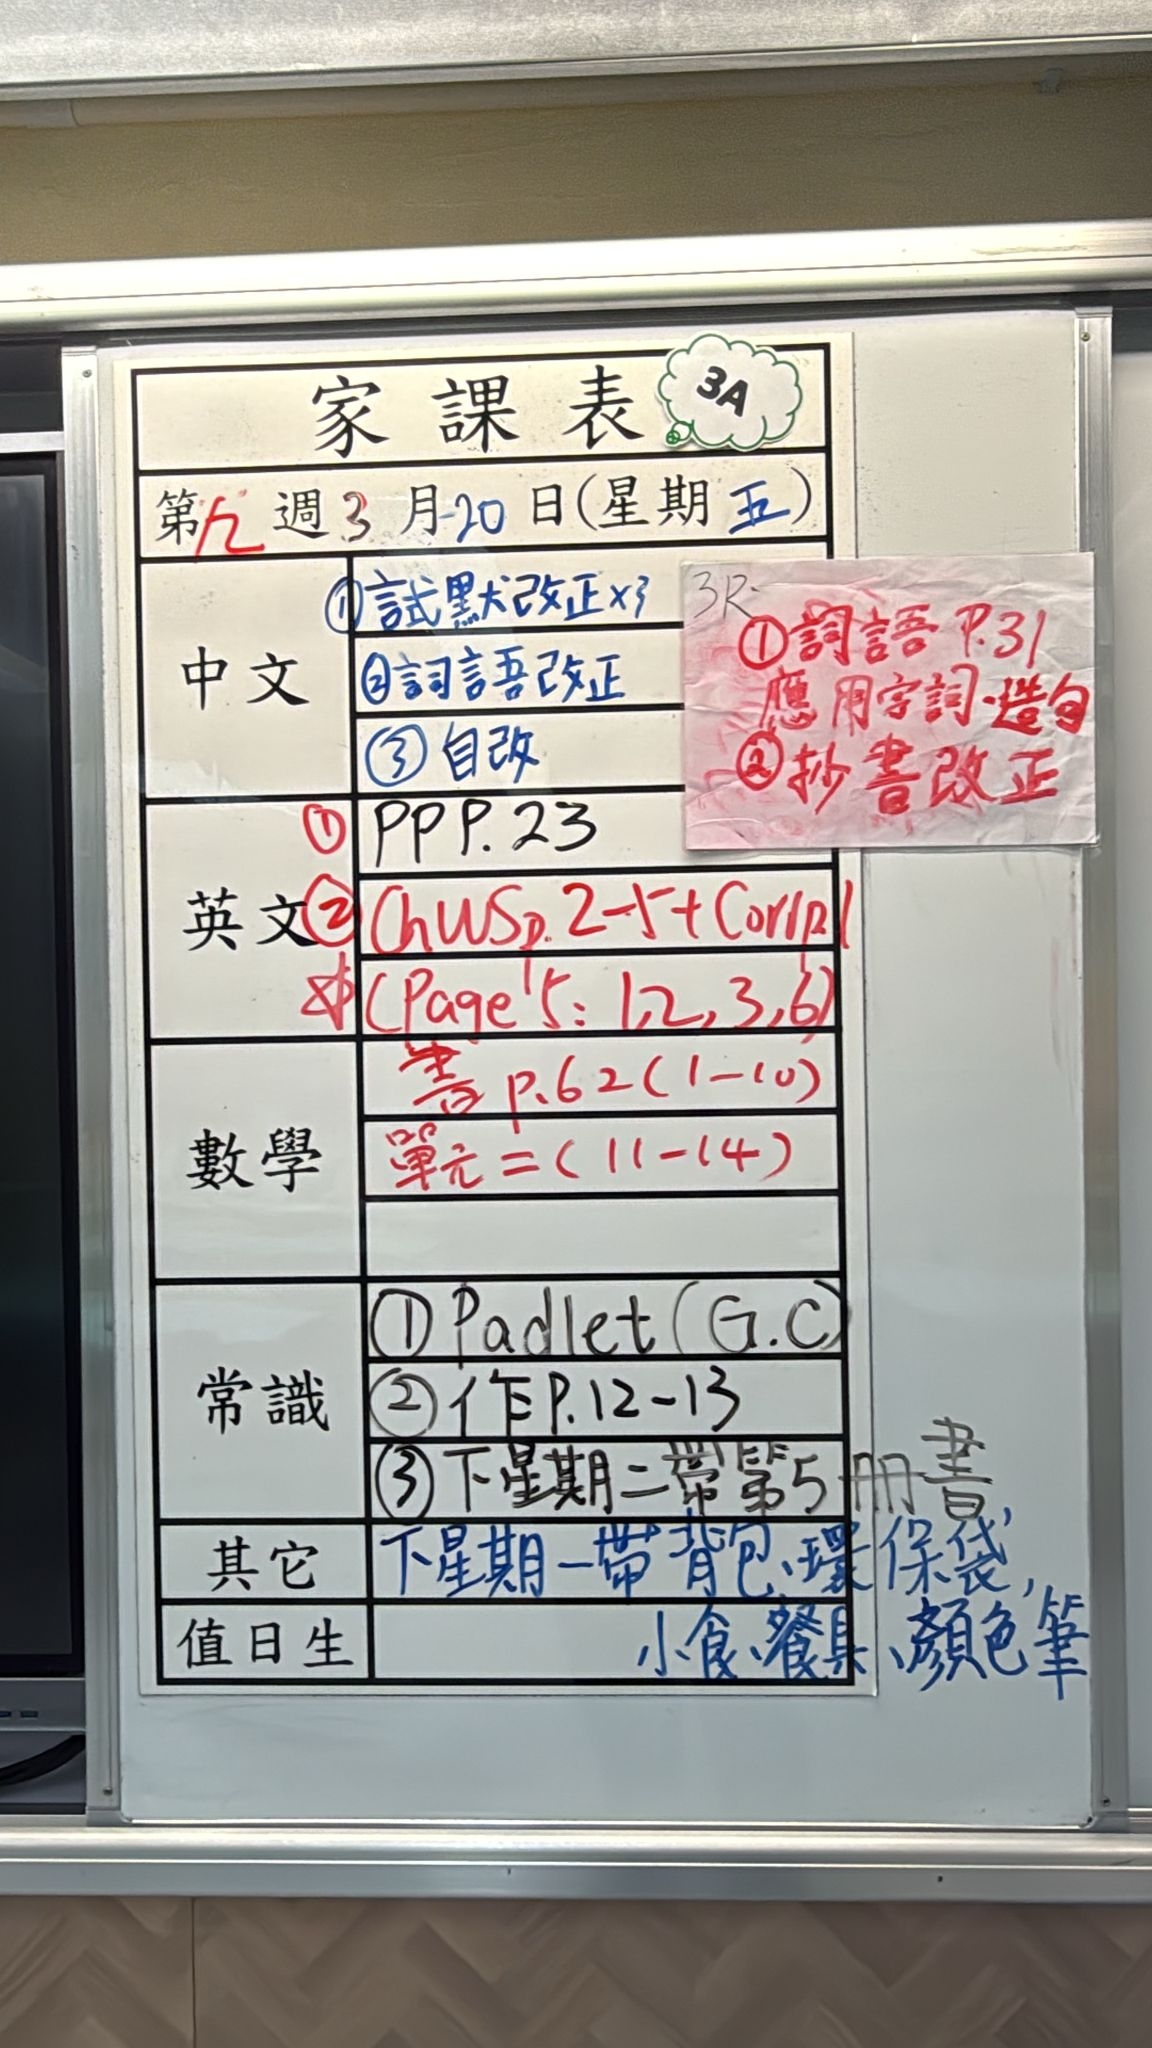 家課表 3A
第九週3月20日(星期五)
中文
①試默改正×3
②詞語改正
③自改
3R
①詞語 P.31
應用字詞、造句
②抄書改正
英文
① PPP.23
② ChWSp. 2-5 +
(Page 5: 1,2,3,6)
數學
書 p.62 (1-10)
單元二 (11-14)
常識
① Padlet (G.C)
②作P.12-13
③下星期二帶第5冊書
其它
下星期一帶背包、環保袋,
小食、餐具、顏色筆
值日生